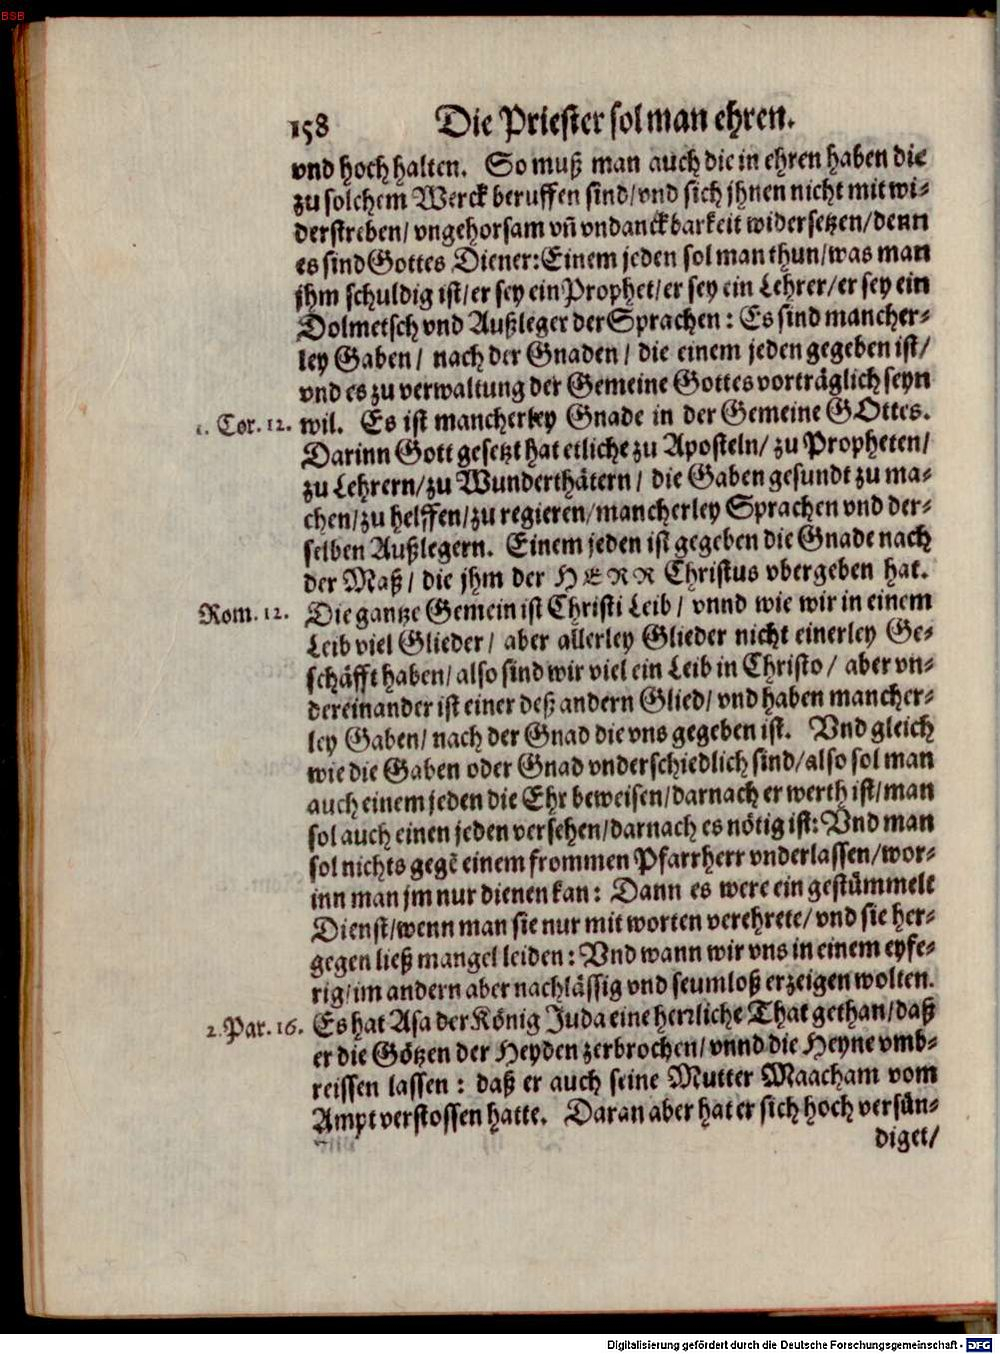 BSB
158 Die Priester sol man ehren.
vnd hoch halten. So muß man auch die in ehren haben die
zu solchem Werck beruffen sind/ vnd sich jhnen nicht mit wi-
derstreben/ vngehorsam vn̄ vndanckbarkeit widersetzen/ denn
es sind Gottes Diener: Einem jeden sol man thun/ was man
jhm schuldig ist/ er sey ein Prophet/ er sey ein Lehrer/ er sey ein
Dolmetsch vnd Außleger der Sprachen: Es sind mancher-
ley Gaben/ nach der Gnaden/ die einem jeden gegeben ist/
vnd es zu verwaltung der Gemeine Gottes vorträglich seyn
1. Cor. 12. wil. Es ist mancherley Gnade in der Gemeine GOttes.
Darinn Gott gesetzt hat etliche zu Aposteln/ zu Propheten/
zu Lehrern/ zu Wunderthätern/ die Gaben gesundt zu ma-
chen/ zu helffen/ zu regieren/ mancherley Sprachen vnd der-
selben Außlegern. Einem jeden ist gegeben die Gnade nach
der Maß/ die jhm der HERR Christus vbergeben hat.
Rom. 12. Die gantze Gemein ist Christi Leib/ vnnd wie wir in einem
Leib viel Glieder/ aber allerley Glieder nicht einerley Ge-
schäfft haben/ also sind wir viel ein Leib in Christo/ aber vn-
dereinander ist einer deß andern Glied/ vnd haben mancher-
ley Gaben/ nach der Gnad die vns gegeben ist. Vnd gleich
wie die Gaben oder Gnad vnderschiedlich sind/ also sol man
auch einem jeden die Ehr beweisen/ darnach er werth ist/ man
sol auch einen jeden versehen/ darnach es nötig ist: Vnd man
sol nichts gegē einem frommen Pfarrherr vnderlassen/ wor-
inn man jm nur dienen kan: Dann es were ein gestümmelt
Dienst/ wenn man sie nur mit worten verehrete/ vnd sie her-
gegen ließ mangel leiden: Vnd wann wir vns in einem eyfe-
rig/ im andern aber nachlässig vnd seumloß erzeigen wolten.
2. Par. 16. Es hat Asa der König Juda eine herrliche That gethan/ daß
er die Götzen der Heyden zerbrochen/ vnnd die Heyne vmb-
reissen lassen: daß er auch seine Mutter Maacham vom
Ampt verstossen hatte. Daran aber hat er sich hoch versün-
diget/
Digitalisierung gefördert durch die Deutsche Forschungsgemeinschaft - DFG